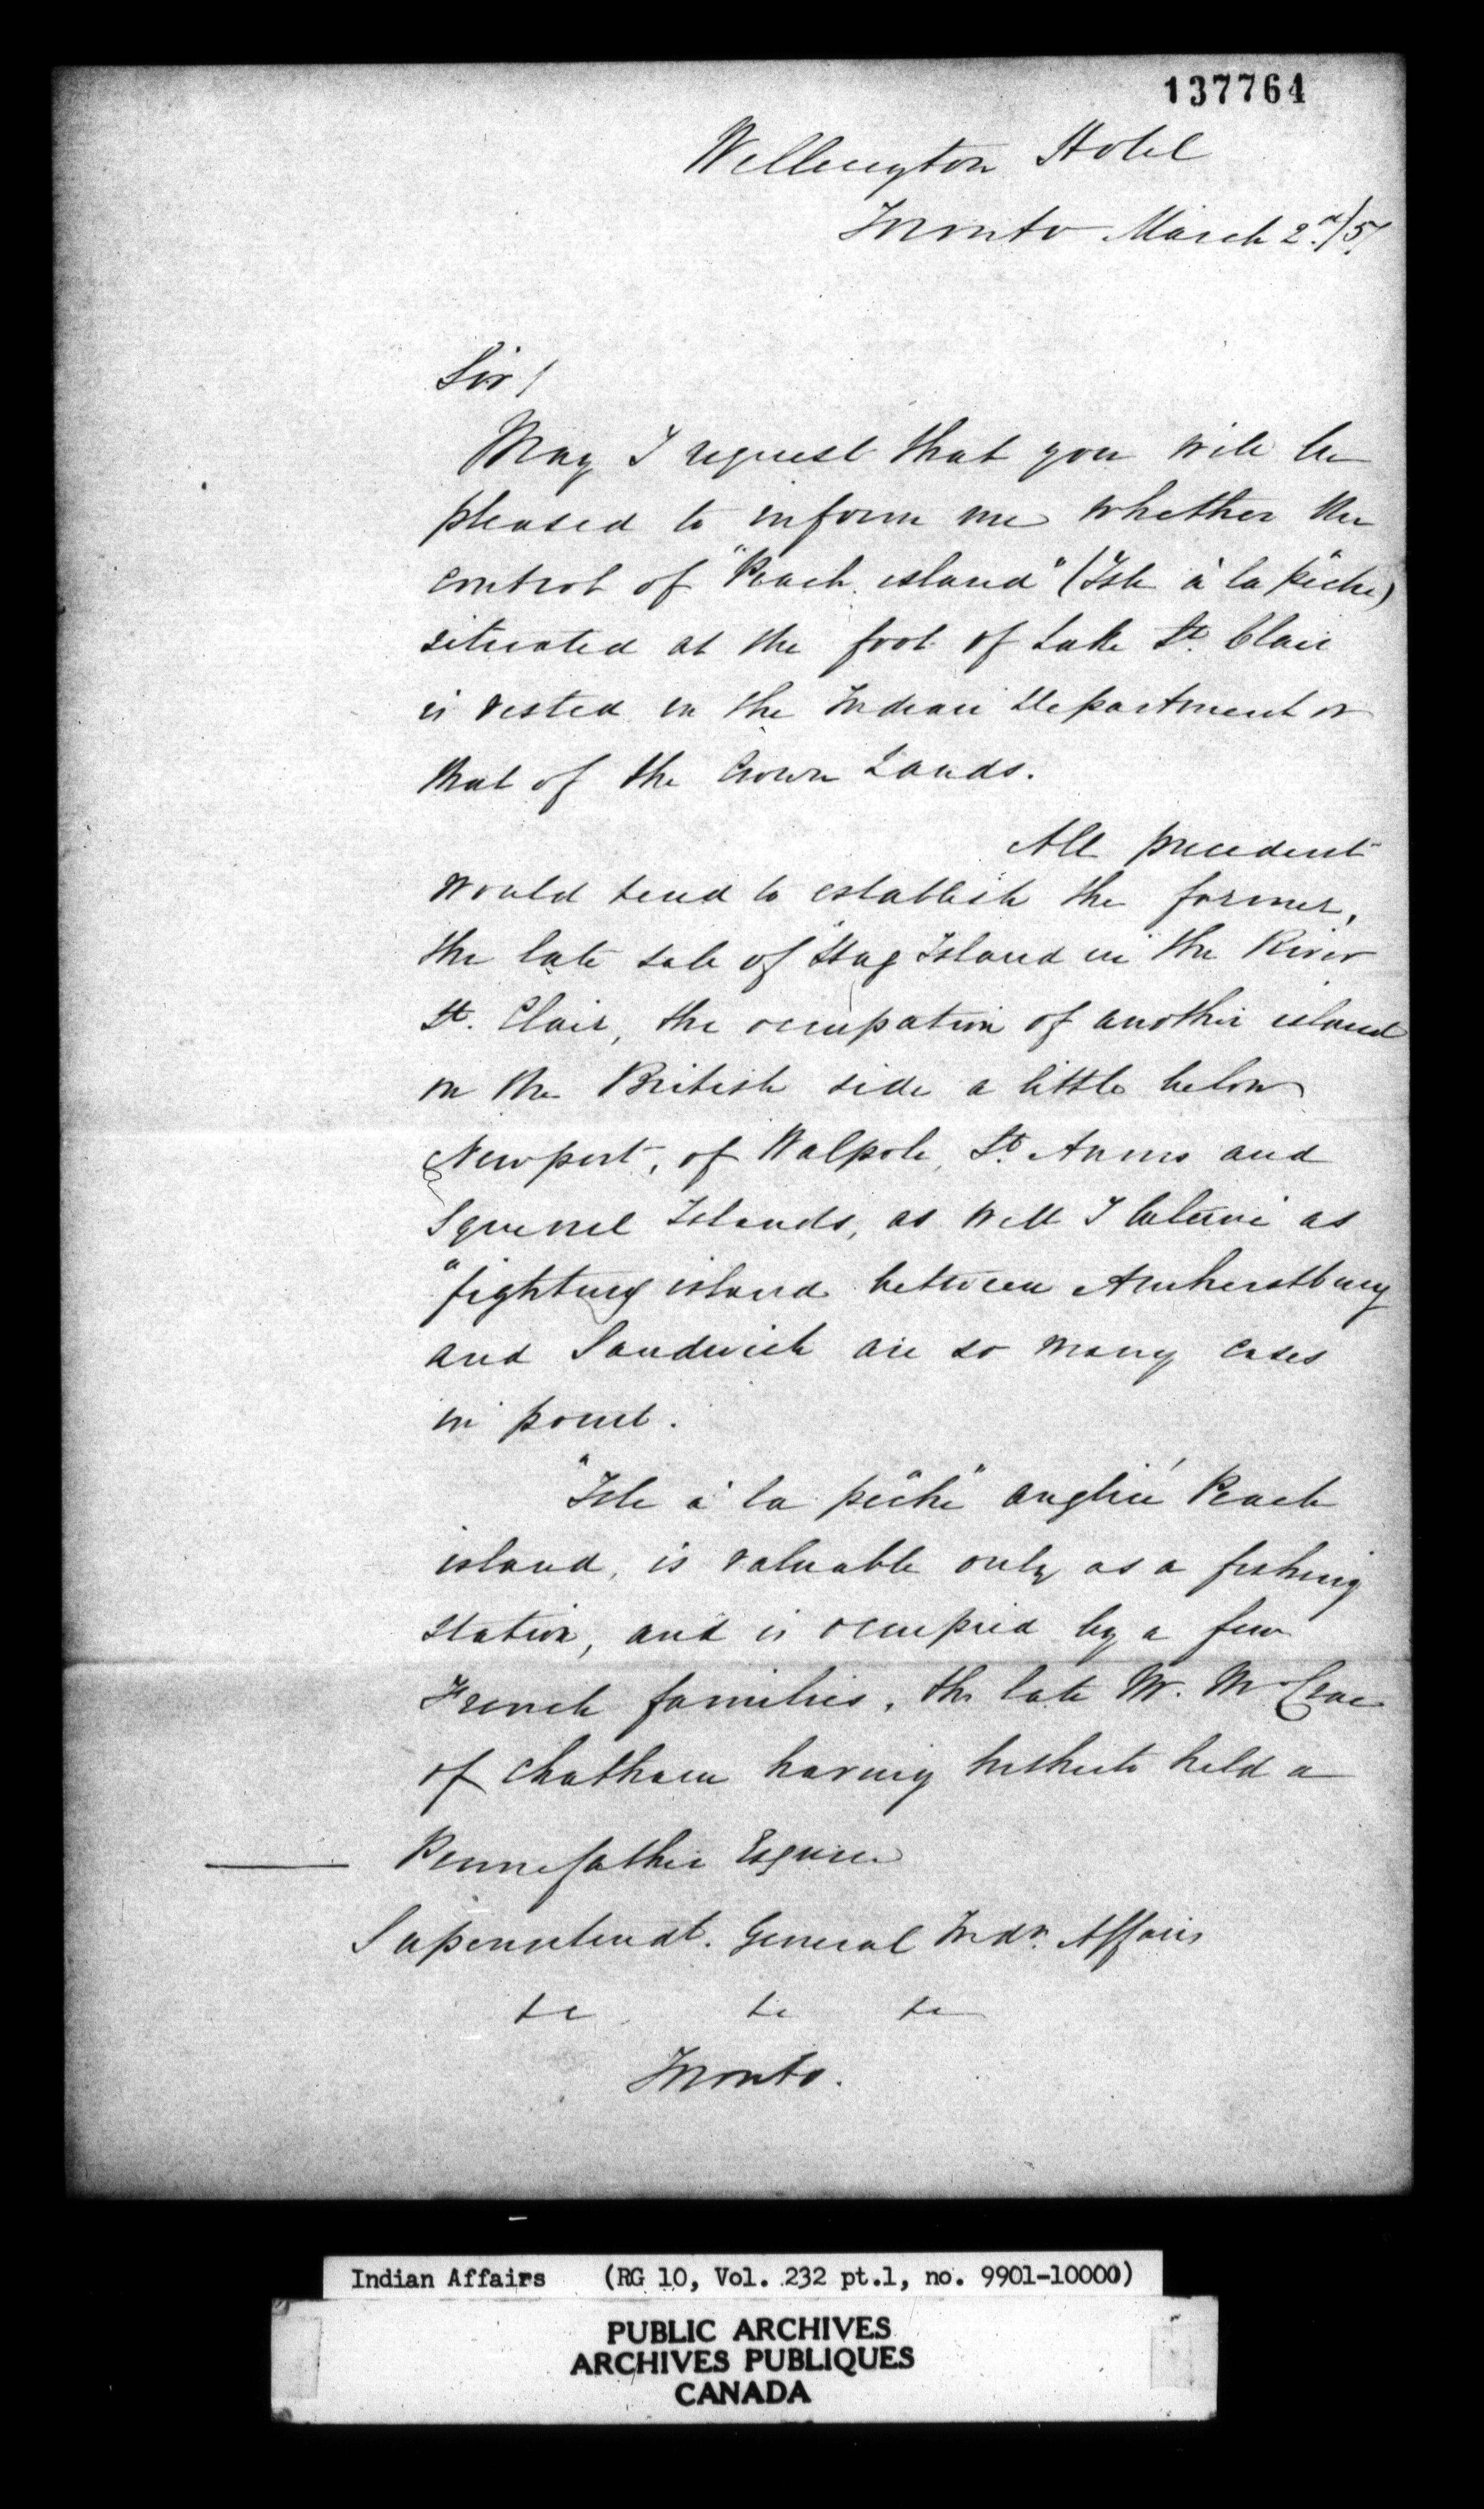 137764
Wellington Hotel
Toronto March 2d/57
Sir!
May I request that you will be
pleased to inform me whether the
control of "Peach island" (Isle à la pêche)
situated at the foot of Lake St. Clair
is vested in the Indian Department or
that of the Crown Lands.
All precedent
would tend to establish the former,
the late sale of Stag Island in the River
St. Clair, the occupation of another island
on the British side a little below
Newport, of Walpole, St. Anns and
Squirrel Islands, as well I believe as
"fighting island between Amherstburg
and Sandwich are so many cases
in point.
"Isle à la pêche" anglicé Peach
island, is valuable only as a fishing
station, and is occupied by a few
French families, the late Mr. McCrae
of Chatham having hitherto held a
Pennefather Esquire
Superintendt. General Indn. Affairs
&c &c &c
Toronto.
Indian Affairs (RG 10, Vol. 232 pt.1, no. 9901-10000)
PUBLIC ARCHIVES
ARCHIVES PUBLIQUES
CANADA